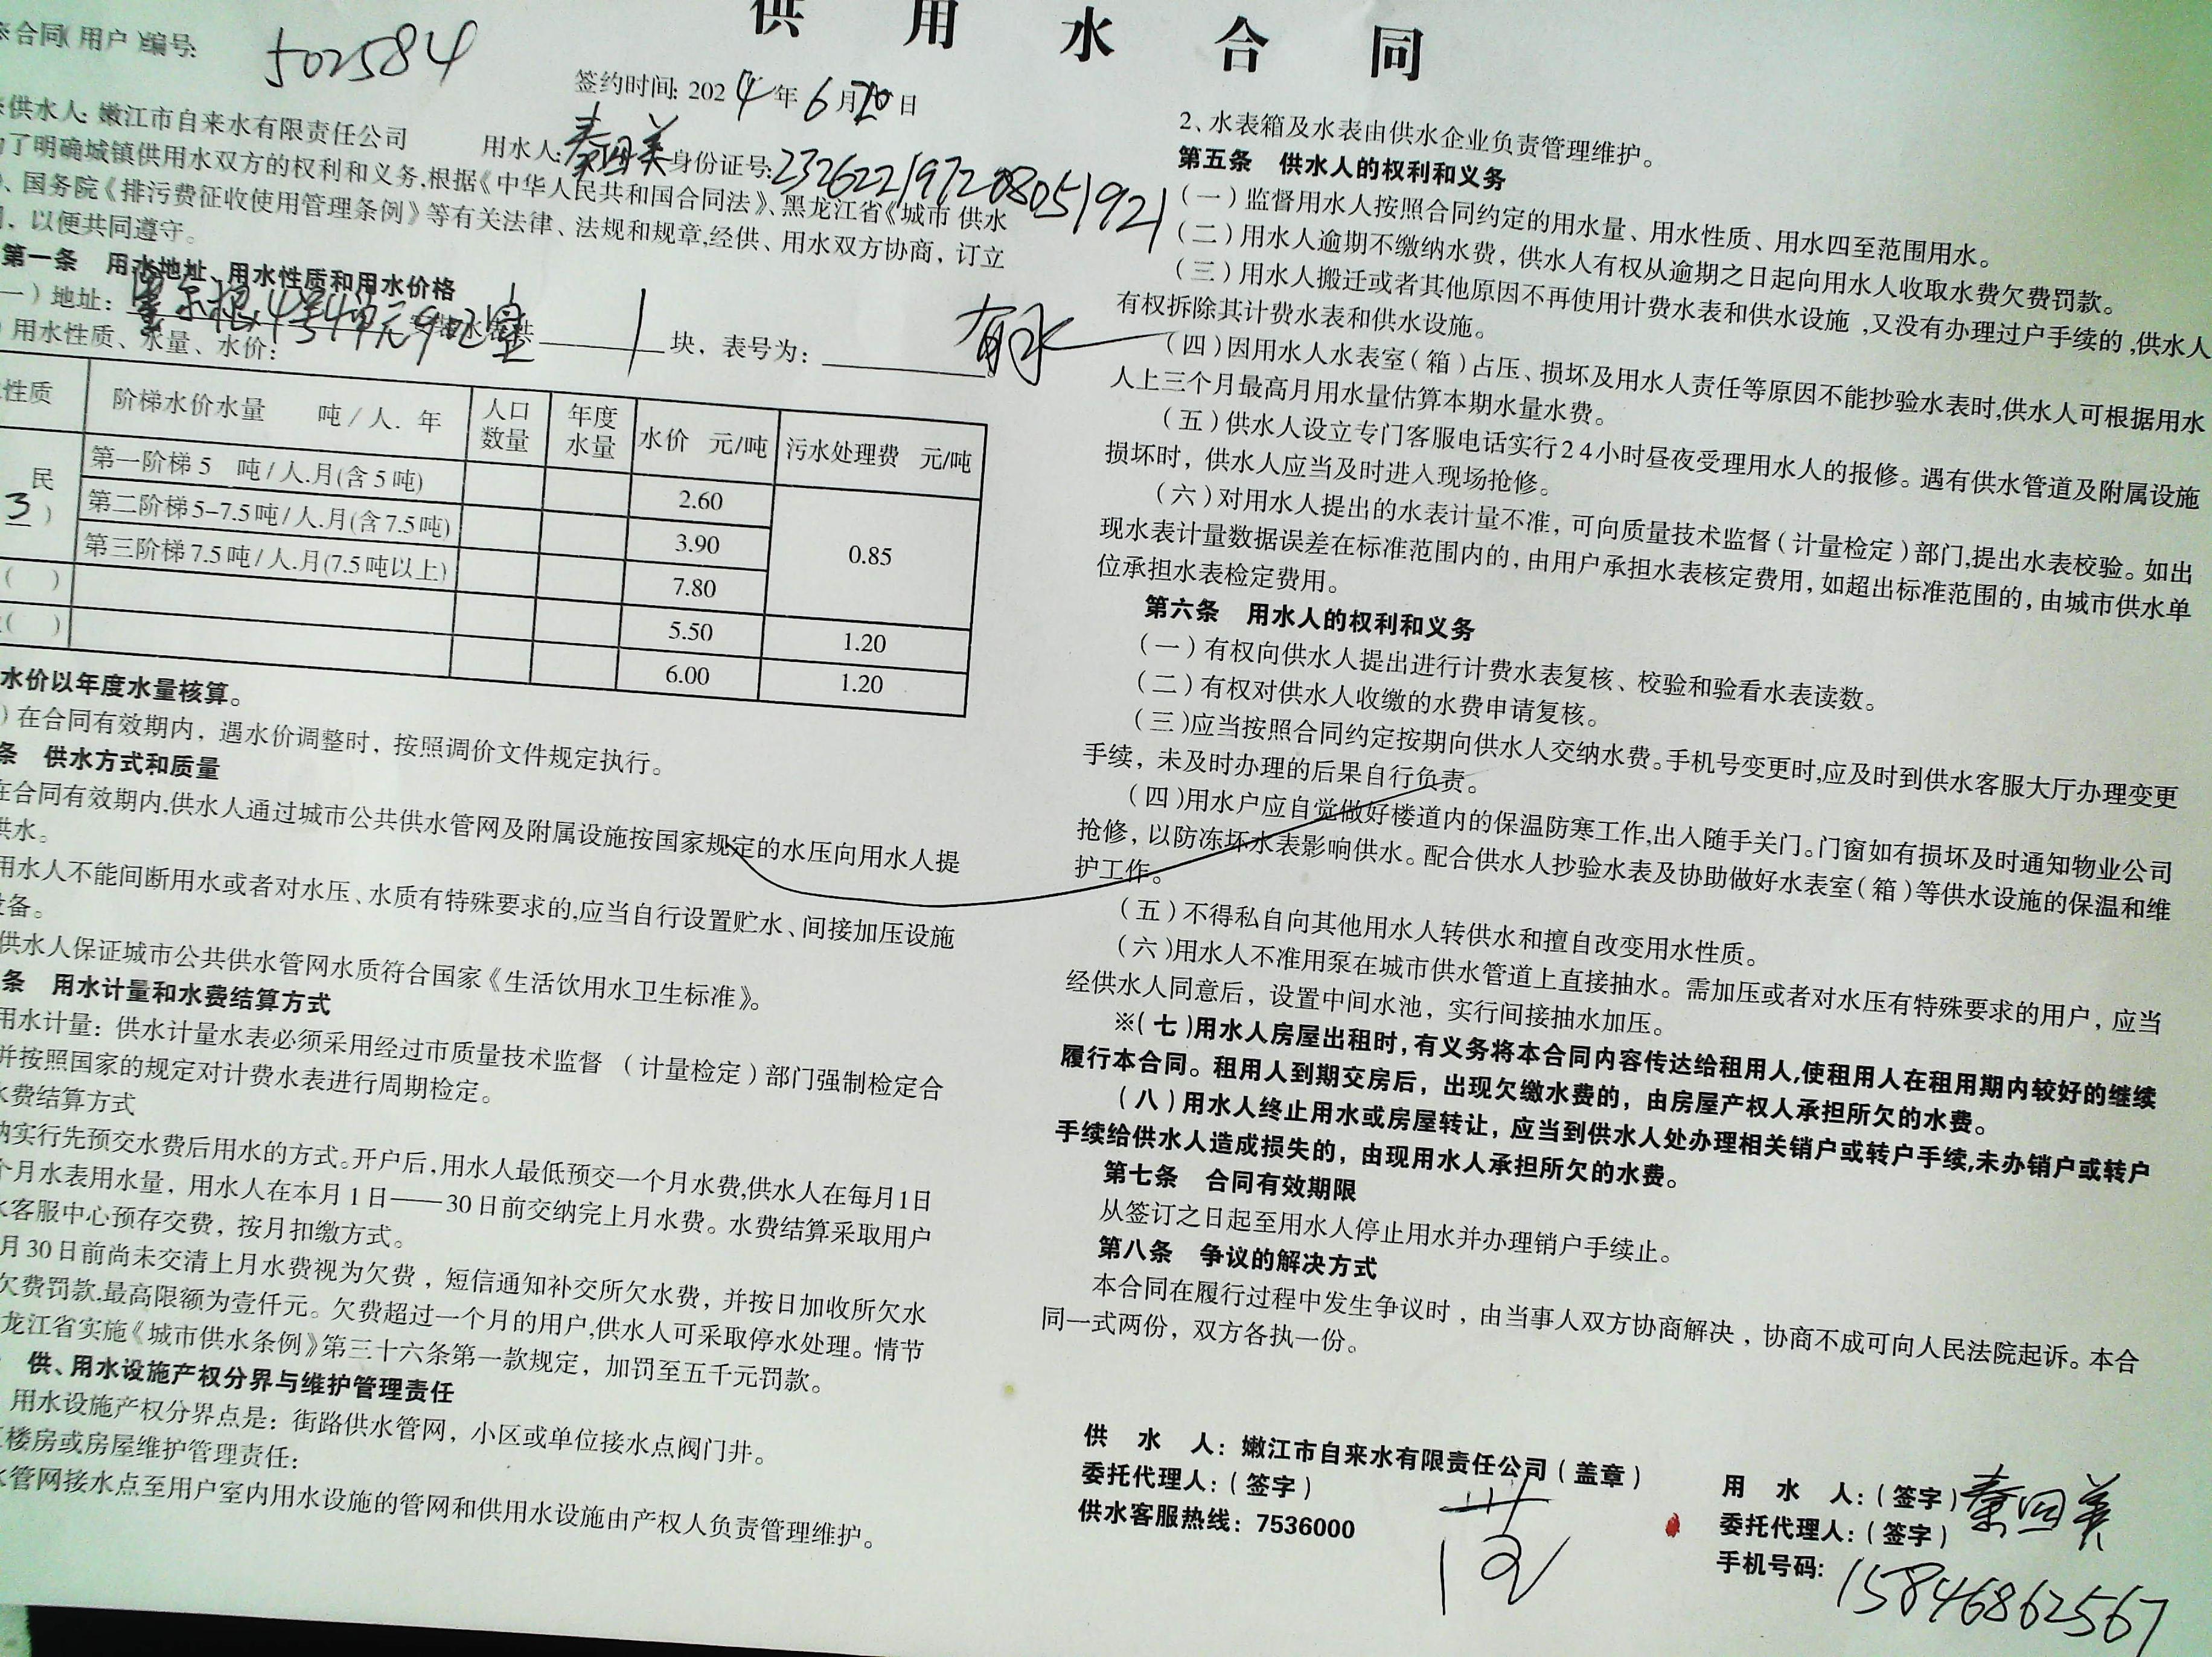 供用水合同
合同(用户)编号: 502584
签约时间: 2024年6月20日
供水人: 嫩江市自来水有限责任公司 用水人: 秦四美 身份证号: 232622197208051921
了明确城镇供用水双方的权利和义务,根据《中华人民共和国合同法》、黑龙江省《城市供水
、国务院《排污费征收使用管理条例》等有关法律、法规和规章,经供、用水双方协商，订立
，以便共同遵守。
第一条 用水地址、用水性质和用水价格
一）地址: 墨尔根4号4单元902室 1 块，表号为: 有水
用水性质、水量、水价:
性质 阶梯水价水量 吨/人.年 人口数量 年度水量 水价 元/吨 污水处理费 元/吨
民 第一阶梯5 吨/人.月(含5吨) 2.60 0.85
3） 第二阶梯5-7.5吨/人.月(含7.5吨) 3.90
第三阶梯7.5吨/人.月(7.5吨以上) 7.80
( ) 5.50 1.20
( ) 6.00 1.20
水价以年度水量核算。
）在合同有效期内，遇水价调整时，按照调价文件规定执行。
条 供水方式和质量
在合同有效期内,供水人通过城市公共供水管网及附属设施按国家规定的水压向用水人提
供水。
用水人不能间断用水或者对水压、水质有特殊要求的,应当自行设置贮水、间接加压设施
设备。
供水人保证城市公共供水管网水质符合国家《生活饮用水卫生标准》。
条 用水计量和水费结算方式
用水计量：供水计量水表必须采用经过市质量技术监督（计量检定）部门强制检定合
并按照国家的规定对计费水表进行周期检定。
水费结算方式
纳实行先预交水费后用水的方式。开户后,用水人最低预交一个月水费,供水人在每月1日
个月水表用水量，用水人在本月1日——30日前交纳完上月水费。水费结算采取用户
水客服中心预存交费，按月扣缴方式。
月30日前尚未交清上月水费视为欠费，短信通知补交所欠水费，并按日加收所欠水
欠费罚款,最高限额为壹仟元。欠费超过一个月的用户,供水人可采取停水处理。情节
龙江省实施《城市供水条例》第三十六条第一款规定，加罚至五千元罚款。
供、用水设施产权分界与维护管理责任
用水设施产权分界点是：街路供水管网，小区或单位接水点阀门井。
楼房或房屋维护管理责任:
水管网接水点至用户室内用水设施的管网和供用水设施由产权人负责管理维护。
2、水表箱及水表由供水企业负责管理维护。
第五条 供水人的权利和义务
(一)监督用水人按照合同约定的用水量、用水性质、用水四至范围用水。
(二)用水人逾期不缴纳水费，供水人有权从逾期之日起向用水人收取水费欠费罚款。
(三)用水人搬迁或者其他原因不再使用计费水表和供水设施,又没有办理过户手续的,供水人
有权拆除其计费水表和供水设施。
(四)因用水人水表室(箱)占压、损坏及用水人责任等原因不能抄验水表时,供水人可根据用水
人上三个月最高月用水量估算本期水量水费。
(五)供水人设立专门客服电话实行24小时昼夜受理用水人的报修。遇有供水管道及附属设施
损坏时，供水人应当及时进入现场抢修。
(六)对用水人提出的水表计量不准，可向质量技术监督(计量检定)部门,提出水表校验。如出
现水表计量数据误差在标准范围内的，由用户承担水表核定费用，如超出标准范围的，由城市供水单
位承担水表检定费用。
第六条 用水人的权利和义务
(一)有权向供水人提出进行计费水表复核、校验和验看水表读数。
(二)有权对供水人收缴的水费申请复核。
(三)应当按照合同约定按期向供水人交纳水费。手机号变更时,应及时到供水客服大厅办理变更
手续，未及时办理的后果自行负责。
(四)用水户应自觉做好楼道内的保温防寒工作,出入随手关门。门窗如有损坏及时通知物业公司
抢修，以防冻坏水表影响供水。配合供水人抄验水表及协助做好水表室(箱)等供水设施的保温和维
护工作。
(五)不得私自向其他用水人转供水和擅自改变用水性质。
(六)用水人不准用泵在城市供水管道上直接抽水。需加压或者对水压有特殊要求的用户，应当
经供水人同意后，设置中间水池，实行间接抽水加压。
※(七)用水人房屋出租时,有义务将本合同内容传达给租用人,使租用人在租用期内较好的继续
履行本合同。租用人到期交房后，出现欠缴水费的，由房屋产权人承担所欠的水费。
(八)用水人终止用水或房屋转让，应当到供水人处办理相关销户或转户手续,未办销户或转户
手续给供水人造成损失的，由现用水人承担所欠的水费。
第七条 合同有效期限
从签订之日起至用水人停止用水并办理销户手续止。
第八条 争议的解决方式
本合同在履行过程中发生争议时，由当事人双方协商解决，协商不成可向人民法院起诉。本合
同一式两份，双方各执一份。
供 水 人：嫩江市自来水有限责任公司(盖章)
委托代理人：(签字)
供水客服热线：7536000
用 水 人：(签字) 秦四美
委托代理人：(签字)
手机号码: 15846862567